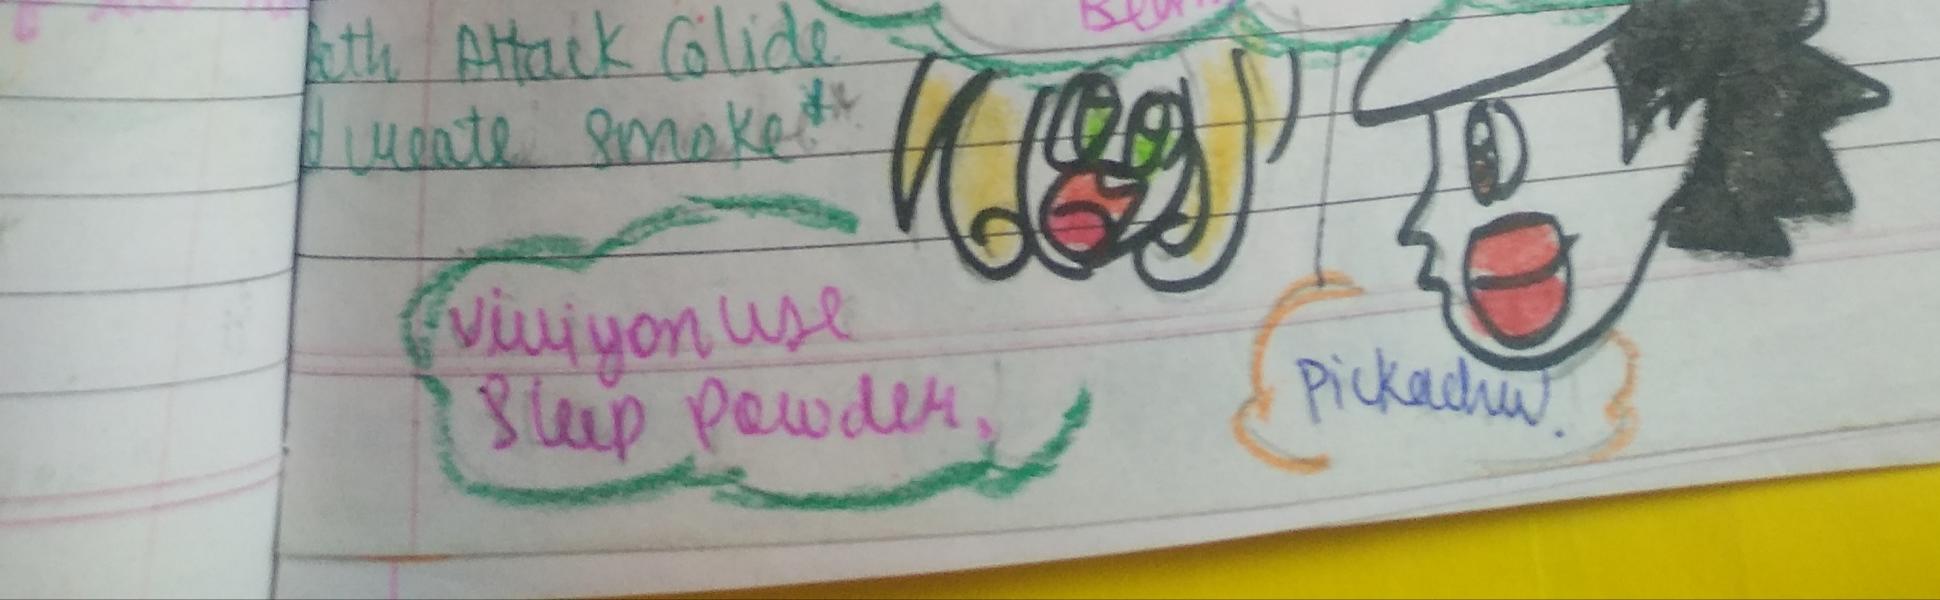 Attack Colide
create smoke**
Viviyon use
Sleep Powder.
Pickachu!